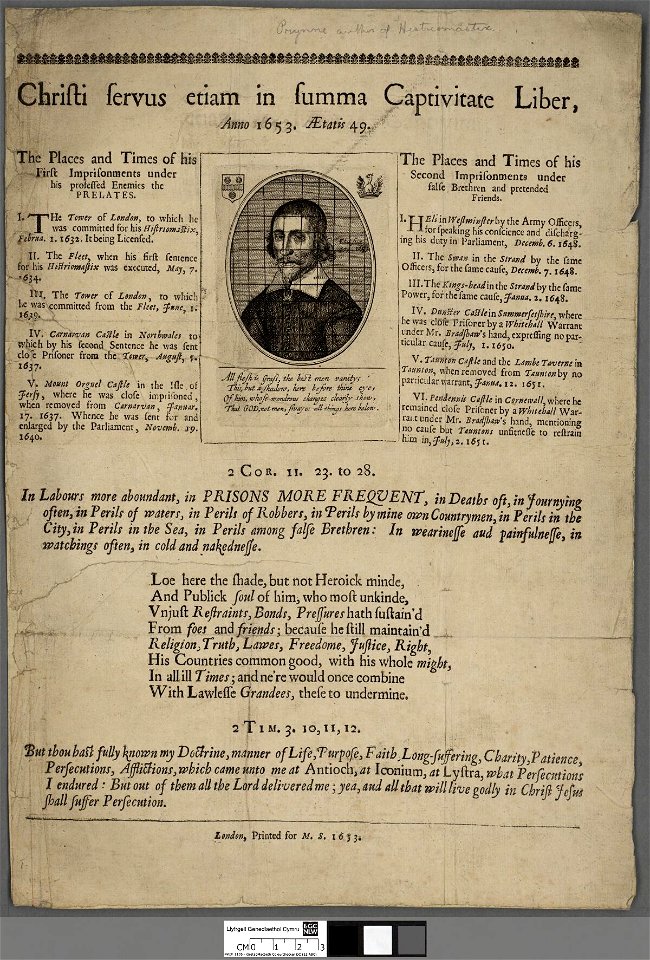 Prynne author of Histriomastix.
Christi servus etiam in summa Captivitate Liber,
Anno 1653. Ætatis 49.
The Places and Times of his
First Imprisonments under
his professed Enemies the
PRELATES.
I. THe Tower of London, to which he
was committed for his Histriomastix,
Februa. 1. 1632. It being Licensed.
II. The Fleet, when his first sentence
for his Histriomastix was executed, May, 7.
1634.
III. The Tower of London, to which
he was committed from the Fleet, June, 1.
1635.
IV. Carnarvan Castle in Northwales to
which by his second Sentence he was sent
close Prisoner from the Tower, August, 5.
1637.
V. Mount Orguel Castle in the Isle of
Jersy, where he was close imprisoned,
when removed from Carnarvan, Januar.
17. 1637. Whence he was sent for and
enlarged by the Parliament, Novemb. 19.
1640.
All flesh is grass, the best men vanity;
This, but a shadow, here before thine eye,
Of him, whose wondrous changes clearly show,
That GOD, not men, swayes all things here below.
The Places and Times of his
Second Imprisonments under
false Brethren and pretended
Friends.
I. HEll in Westminster by the Army Officers,
for speaking his conscience and discharg-
ing his duty in Parliament, Decemb. 6. 1648.
II. The Swan in the Strand by the same
Officers, for the same cause, Decemb. 7. 1648.
III. The Kings-head in the Strand by the same
Power, for the same cause, Janua. 2. 1648.
IV. Dunster Castle in Summersetshire, where
he was close Prisoner by a Whitehall Warrant
under Mr. Bradshaw's hand, expressing no par-
ticular cause, July, 1. 1650.
V. Taunton Castle and the Lambe Taverne in
Taunton, when removed from Taunton by no
particular warrant, Janua. 12. 1651.
VI. Pendennis Castle in Cornewall, where he
remained close Prisoner by a Whitehall War-
rant under Mr. Bradshaw's hand, mentioning
no cause but Tauntons unfitnesse to restrain
him in, July, 2. 1651.
2 COR. 11. 23. to 28.
In Labours more aboundant, in PRISONS MORE FREQVENT, in Deaths oft, in Journying
often, in Perils of waters, in Perils of Robbers, in Perils by mine own Countrymen, in Perils in the
City, in Perils in the Sea, in Perils among false Brethren: In wearinesse aud painfulnesse, in
watchings often, in cold and nakednesse.
Loe here the shade, but not Heroick minde,
And Publick soul of him, who most unkinde,
Vnjust Restraints, Bonds, Pressures hath sustain'd
From foes and friends; because he still maintain'd
Religion, Truth, Lawes, Freedome, Justice, Right,
His Countries common good, with his whole might,
In all ill Times; and ne're would once combine
With Lawlesse Grandees, these to undermine.
2 TIM. 3. 10, 11, 12.
But thou hast fully known my Doctrine, manner of Life, Purpose, Faith, Long-suffering, Charity, Patience,
Persecutions, Afflictions, which came unto me at Antioch, at Iconium, at Lystra, what Persecutions
I endured: But out of them all the Lord delivered me; yea, and all that will live godly in Christ Jesus
shall suffer Persecution.
London, Printed for M. S. 1653.
Llyfrgell Genedlaethol Cymru
EGC
NLW
CM 0 1 2 3